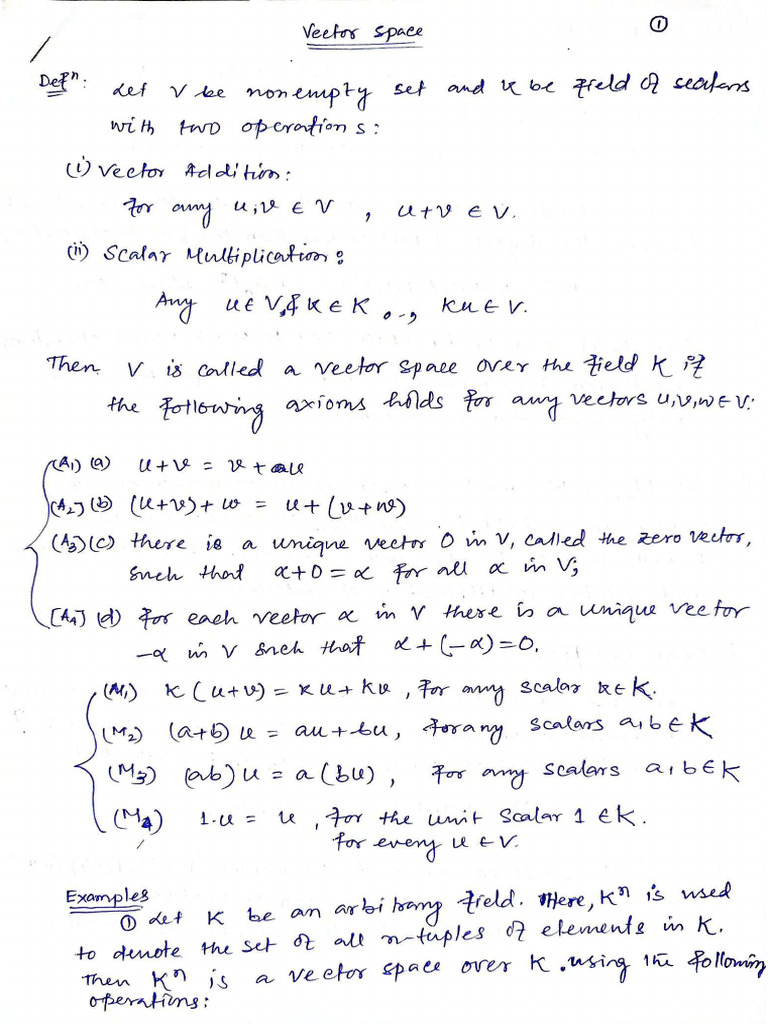 Vector Space ①
Defⁿ: Let V be nonempty set and K be field of scalars
with two operations:
(i) Vector Addition:
For any u,v ∈ V , u+v ∈ V.
(ii) Scalar Multiplication:
Any u ∈ V, & k ∈ K , ku ∈ V.
Then V is called a vector space over the field K if
the following axioms holds for any vectors u,v,w ∈ V:
(A₁) (a) u+v = v+u
[A₂] (b) (u+v)+w = u+(v+w)
(A₃) (c) there is a unique vector 0 in V, called the zero vector,
such that α+0 = α for all α in V;
[A₄] (d) for each vector α in V there is a unique vector
-α in V such that α+(-α)=0.
(M₁) k(u+v) = ku+kv , for any scalar k ∈ K.
(M₂) (a+b)u = au+bu, for any scalars a,b ∈ K
(M₃) (ab)u = a(bu) , for any scalars a,b ∈ K
(M₄) 1.u = u , for the unit scalar 1 ∈ K.
for every u ∈ V.
Examples
① Let K be an arbitrary field. Here, Kⁿ is used
to denote the set of all n-tuples of elements in K.
Then Kⁿ is a vector space over K. using the following
operations: